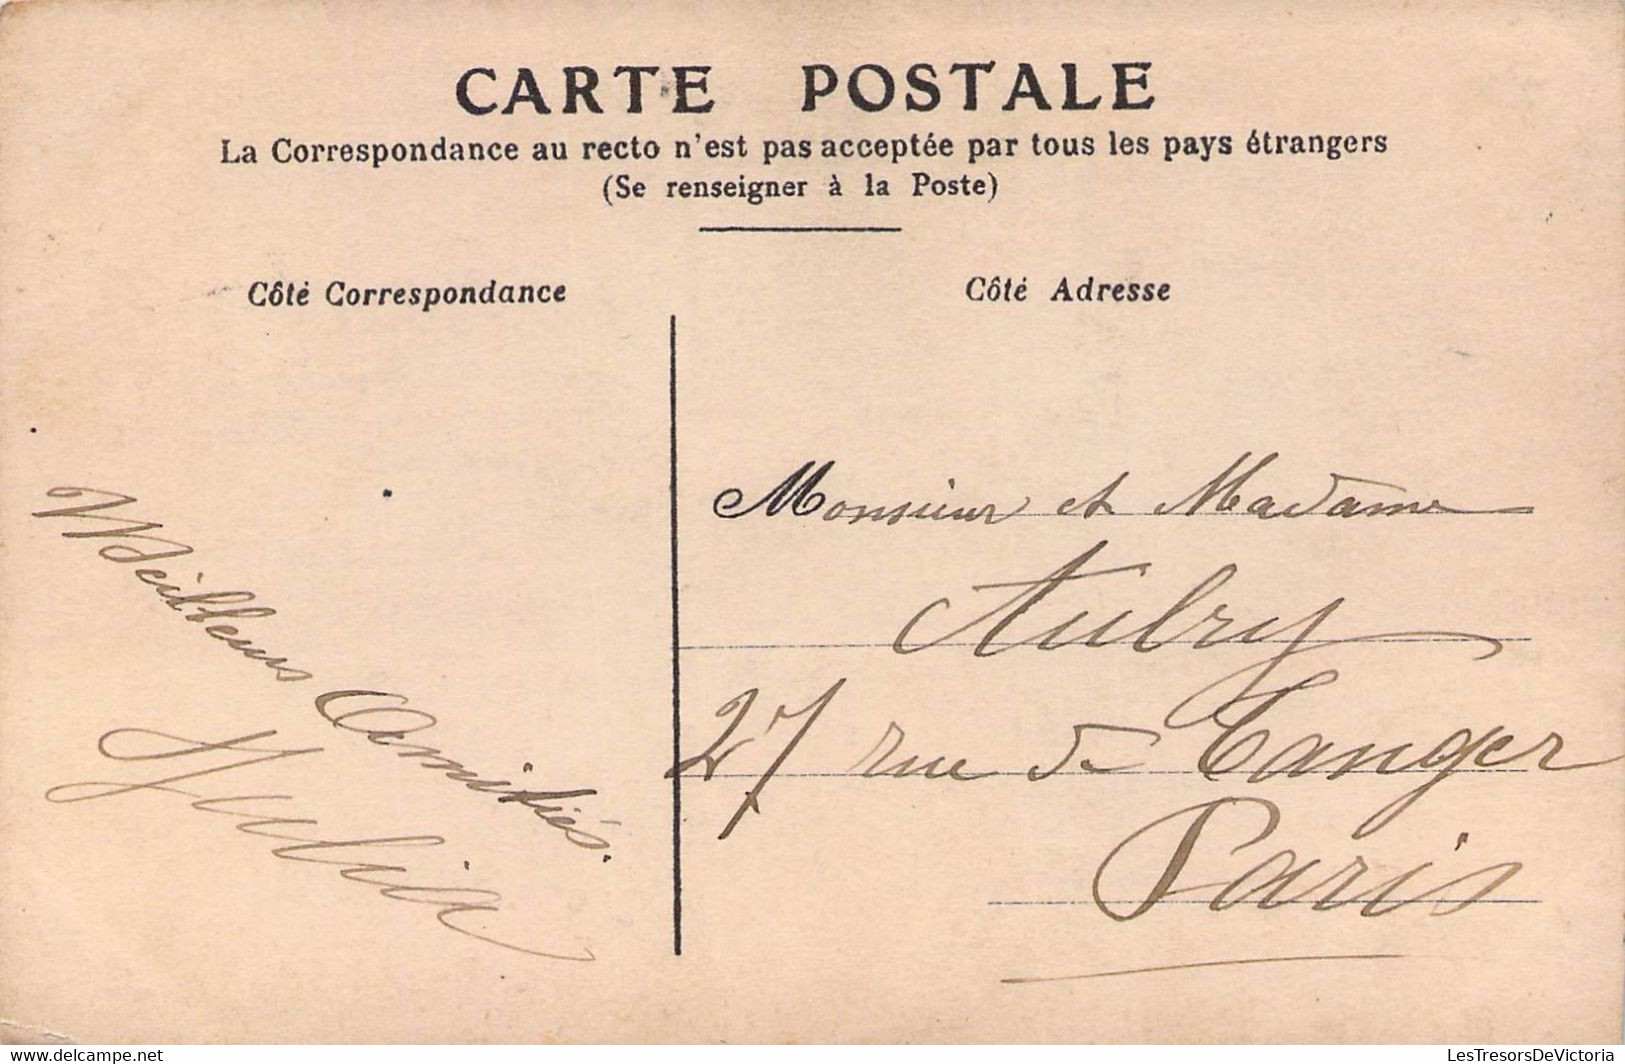 CARTE POSTALE
La Correspondance au recto n'est pas acceptée par tous les pays étrangers
(Se renseigner à la Poste)
Côté Correspondance
Côté Adresse
Meilleurs Amitiés.
Julia
Monsieur et Madame
Aubry
27 rue de Tanger
Paris
www.delcampe.net
LesTresorsDeVictoria